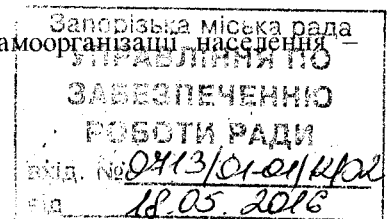 Запорізька міська рада
амоорганізації населення –
УПРАВЛІННЯ ПО
ЗАБЕЗПЕЧЕННЮ
РОБОТИ РАДИ
вхід. № 0713/01-01/12/02
від 18.05.2016